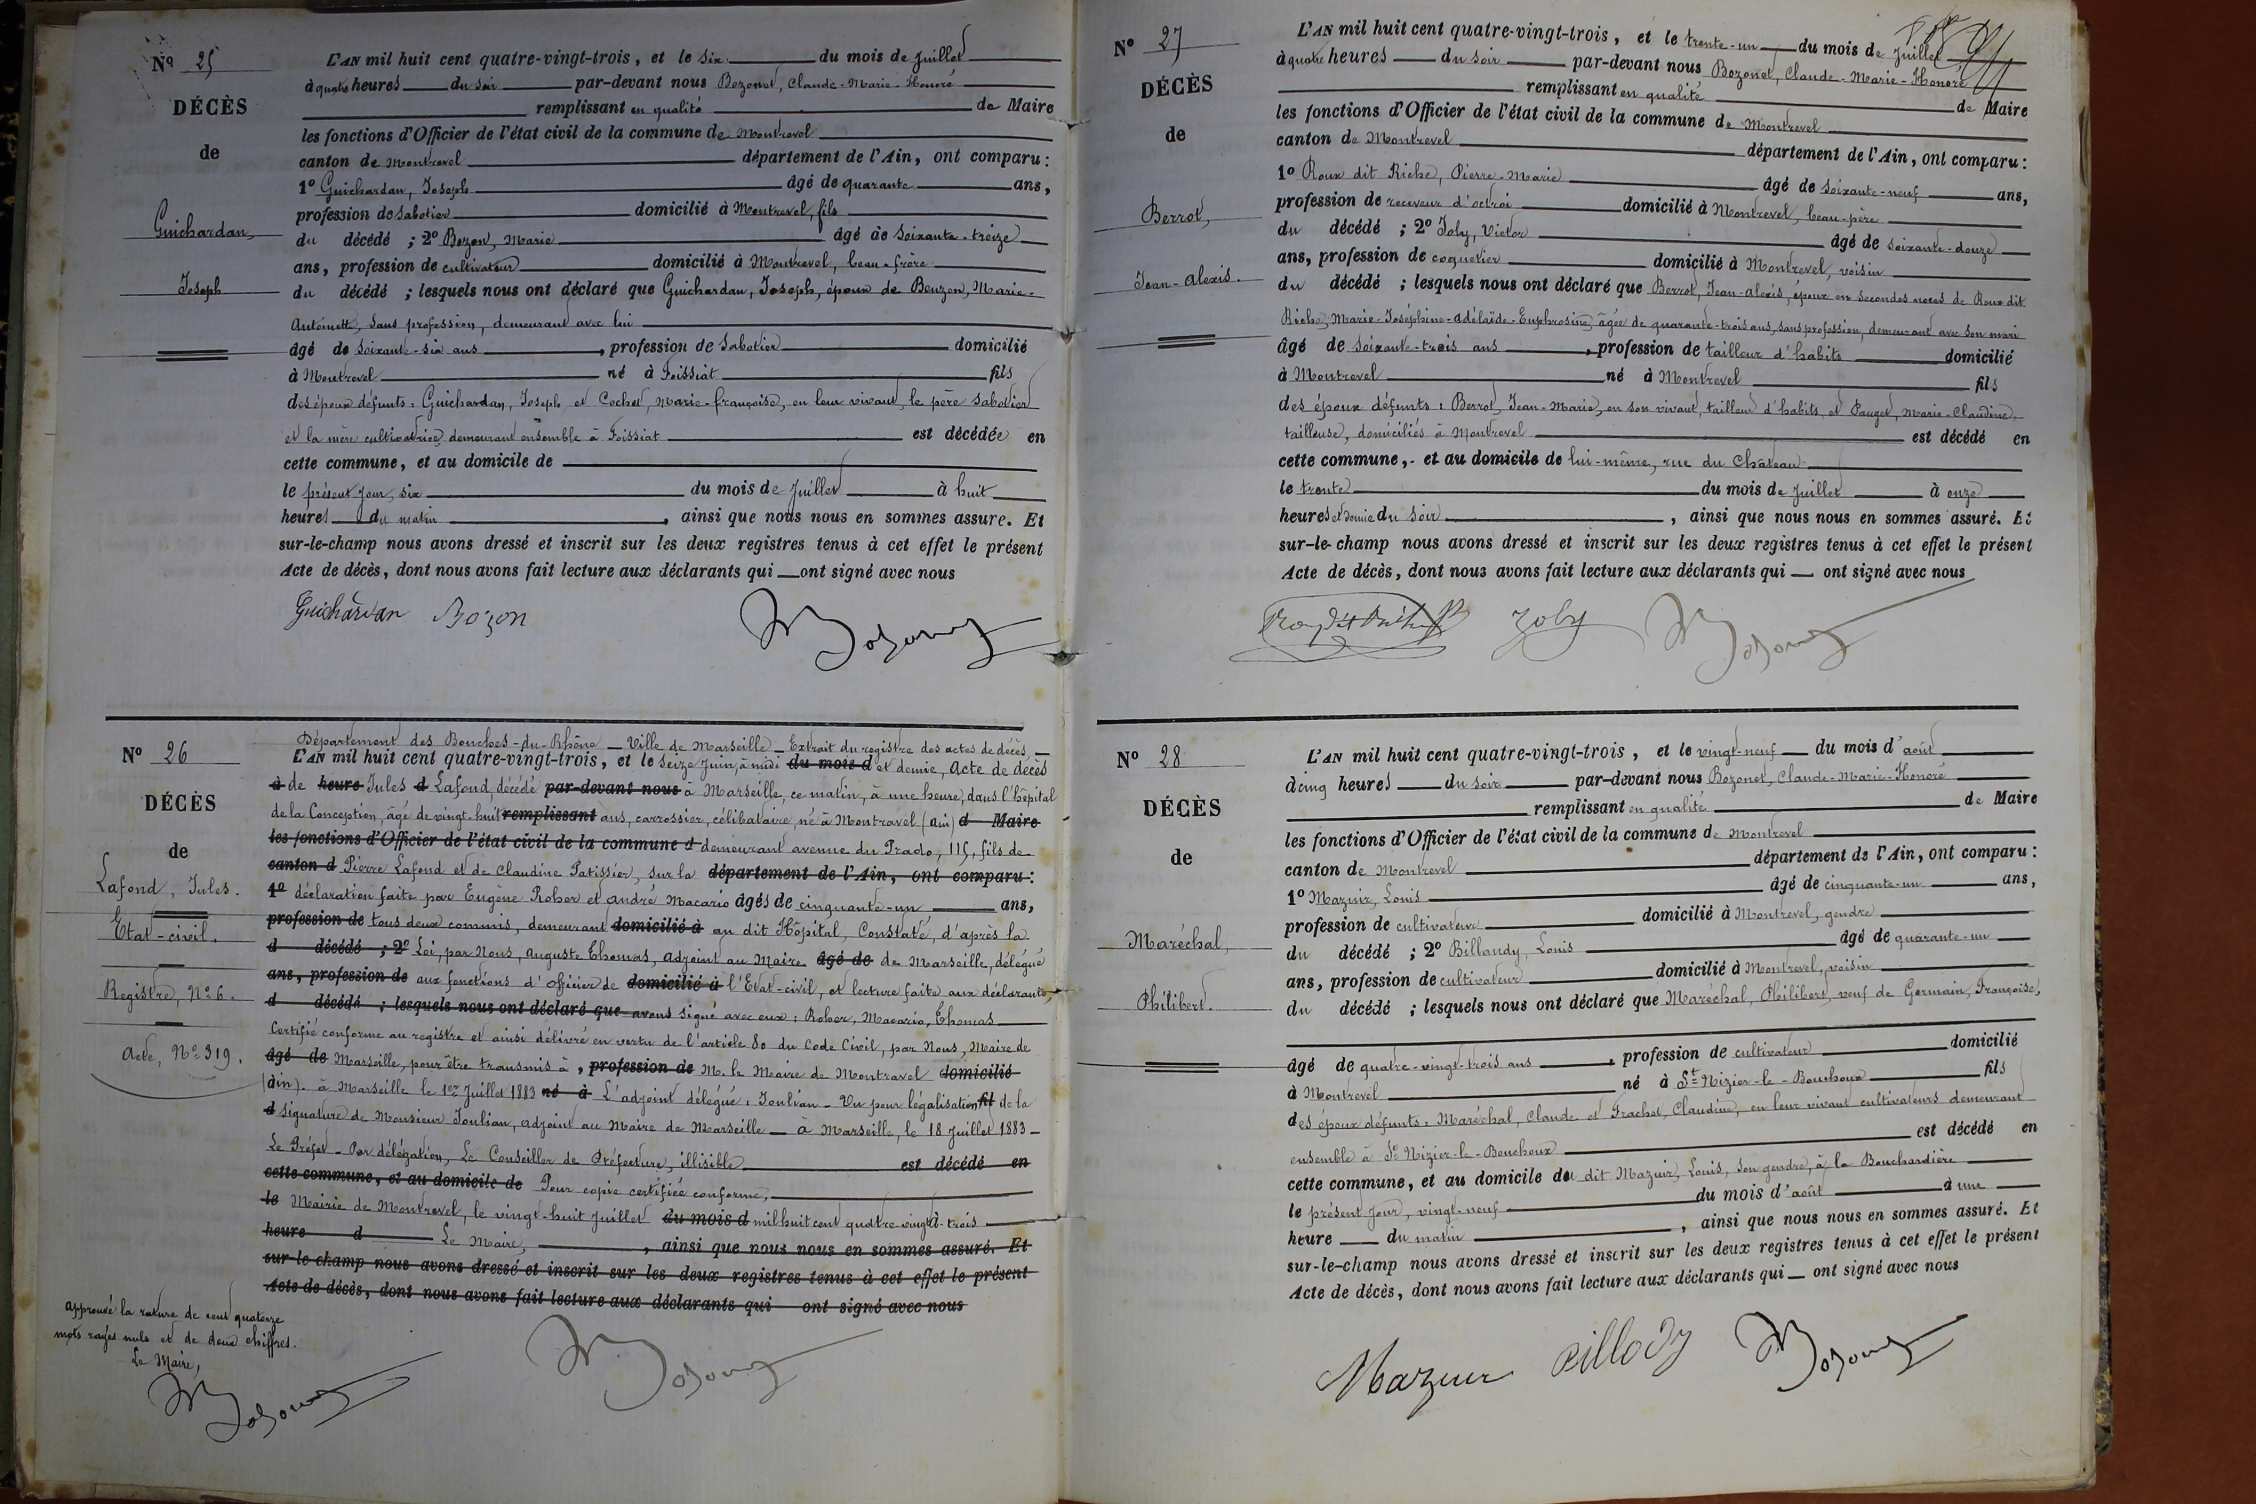 Nº 25
DÉCÈS
de
Guichardan,
Joseph
L'AN mil huit cent quatre-vingt-trois, et le six du mois de Juillet
à quatre heures du soir par-devant nous Bozonet, Claude-Marie-Honoré
remplissant en qualité de Maire
les fonctions d'Officier de l'état civil de la commune de Montrevel
canton de Montrevel département de l'Ain, ont comparu :
1º Guichardan, Joseph âgé de quarante ans,
profession de Sabotier domicilié à Montrevel, fils
du décédé ; 2º Bozon, Marie âgé de soixante-treize
ans, profession de cultivateur domicilié à Montrevel, beau-frère
du décédé ; lesquels nous ont déclaré que Guichardan, Joseph, époux de Bouzon, Marie-
Antoinette, sans profession, demeurant avec lui
âgé de soixante-six ans, profession de Sabotier domicilié
à Montrevel né à Foissiat fils
des époux défunts : Guichardan, Joseph et Cochet, Marie-françoise, en leur vivant, le père Sabotier
et la mère cultivatrice, demeurant ensemble à Foissiat est décédée en
cette commune, et au domicile de
le présent jour, six du mois de Juillet à huit
heures du matin, ainsi que nous nous en sommes assuré. Et
sur-le-champ nous avons dressé et inscrit sur les deux registres tenus à cet effet le présent
Acte de décès, dont nous avons fait lecture aux déclarants qui ont signé avec nous
Guichardan Bozon Bozonet
Nº 26
DÉCÈS
de
Lafond, Jules.
Etat-civil.
Registre, Nº 6.
Acte, Nº 319.
Département des Bouches-du-Rhône - Ville de Marseille - Extrait du registre des actes de décès -
L'AN mil huit cent quatre-vingt-trois, et le seize Juin, à midi du mois d et demie, Acte de décès
à de heure Jules d Lafond, décédé par-devant nous à Marseille, ce matin, à une heure, dans l'hôpital
de la Conception, âgé de vingt-huit remplissant ans, carrossier, célibataire, né à Montravel (ain) d Maire
les fonctions d'Officier de l'état civil de la commune d demeurant avenue du Prado, 115, fils de
canton d Pierre Lafond et de Claudine Patissier, sur la département de l'Ain, ont comparu :
1º déclaration faite par Eugène Rober et andré Macario âgés de cinquante-un ans,
profession de tous deux commis, demeurant domicilié à au dit Hôpital, Constaté, d'après la
d décédé ; 2º Loi, par Nous, Auguste Thomas, Adjoint au Maire âgé de de Marseille, délégué
ans, profession de aux fonctions d'officier de domicilié à l'Etat-civil, et lecture faite aux déclarants,
d décédé ; lesquels nous ont déclaré que avons signé avec eux : Rober, Macario, Thomas
Certifié conforme au registre et ainsi délivré en vertu de l'article 80 du Code Civil, par Nous, Maire de
âgé de Marseille, pour être transmis à, profession de M. le Maire de Montravel domicilié
(Ain). à Marseille le 1er Juillet 1883 né à L'adjoint délégué : Joulian - Vu pour légalisation fil de la
d signature de Monsieur Joulian, adjoint au Maire de Marseille - à Marseille, le 18 Juillet 1883 -
Le Préfet - Par délégation, Le Conseiller de Préfecture, illisible est décédé en
cette commune, et au domicile de Pour copie certifiée conforme,
le Mairie de Montrevel, le vingt-huit Juillet du mois d mil huit cent quatre vingt-trois
heure d Le Maire, , ainsi que nous nous en sommes assuré. Et
sur-le-champ nous avons dressé et inscrit sur les deux registres tenus à cet effet le présent
Acte de décès, dont nous avons fait lecture aux déclarants qui ont signé avec nous
Approuvé la rature de cent quatorze
mots rayés nuls et de deux chiffres.
Le Maire,
Bozonet Bozonet
Nº 27
DÉCÈS
de
Berrot,
Jean-Alexis.
L'AN mil huit cent quatre-vingt-trois, et le trente-un du mois de Juillet
à quatre heures du soir par-devant nous Bozonet, Claude-Marie-Honoré
remplissant en qualité de Maire
les fonctions d'Officier de l'état civil de la commune de Montrevel
canton de Montrevel département de l'Ain, ont comparu :
1º Roux dit Riche, Pierre-Marie âgé de soixante-neuf ans,
profession de receveur d'octroi domicilié à Montrevel, beau-père
du décédé ; 2º Joly, Victor âgé de soixante-douze
ans, profession de coquetier domicilié à Montrevel, voisin
du décédé ; lesquels nous ont déclaré que Berrot, Jean-Alexis, époux en secondes noces de Roux dit
Riche, Marie-Joséphine-Adélaïde-Euphrosine, âgée de quarante-trois ans, sans profession, demeurant avec son mari
âgé de soixante-trois ans, profession de tailleur d'habits domicilié
à Montrevel né à Montrevel fils
des époux défunts : Berrot, Jean-Marie, en son vivant, tailleur d'habits, et Pauget, Marie-Claudine,
tailleuse, domiciliés à Montrevel est décédé en
cette commune, et au domicile de lui-même, rue du Château
le trente du mois de Juillet à onze
heures et demie du soir, ainsi que nous nous en sommes assuré. Et
sur-le-champ nous avons dressé et inscrit sur les deux registres tenus à cet effet le présent
Acte de décès, dont nous avons fait lecture aux déclarants qui ont signé avec nous
Joly Bozonet
Nº 28
DÉCÈS
de
Maréchal,
Philibert.
L'AN mil huit cent quatre-vingt-trois, et le vingt-neuf du mois d'août
à cinq heures du soir par-devant nous Bozonet, Claude-Marie-Honoré
remplissant en qualité de Maire
les fonctions d'Officier de l'état civil de la commune de Montrevel
canton de Montrevel département de l'Ain, ont comparu :
1º Mazuir, Louis âgé de cinquante-un ans,
profession de cultivateur domicilié à Montrevel, gendre
du décédé ; 2º Billaudy, Louis âgé de quarante-un
ans, profession de cultivateur domicilié à Montrevel, voisin
du décédé ; lesquels nous ont déclaré que Maréchal, Philibert, veuf de Germain, Françoise,
âgé de quatre-vingt-trois ans, profession de cultivateur domicilié
à Montrevel né à St-Nizier-le-Bouchoux fils
des époux défunts : Maréchal, Claude et Frachet, Claudine, en leur vivant cultivateurs demeurant
ensemble à St Nizier-le-Bouchoux est décédé en
cette commune, et au domicile du dit Mazuir, Louis, son gendre, à la Bouchardière
le présent jour, vingt-neuf du mois d'août à une
heure du matin, ainsi que nous nous en sommes assuré. Et
sur-le-champ nous avons dressé et inscrit sur les deux registres tenus à cet effet le présent
Acte de décès, dont nous avons fait lecture aux déclarants qui ont signé avec nous
Mazuir Billody Bozonet